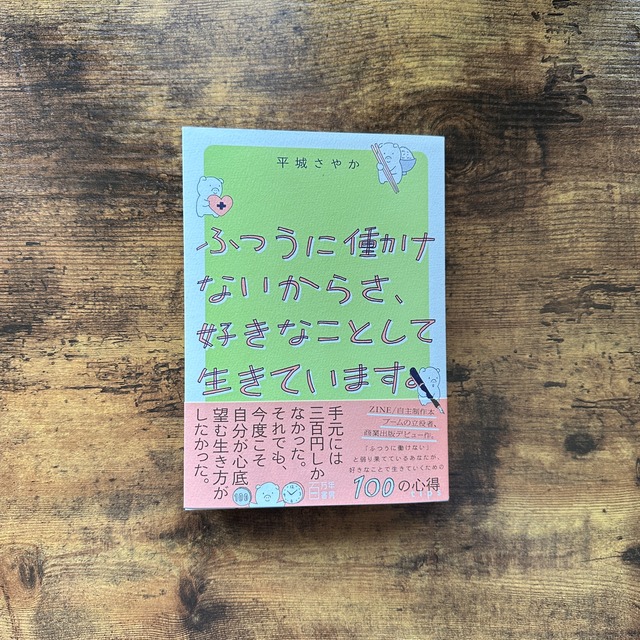 平城さやか
ふつうに働け
ないからさ、
好きなことして
生きています。
手元には
三百円しか
なかった。
それでも、
今度こそ
自分が心底
望む生き方が
したかった。
ZINE/自主制作本
ブームの立役者、
商業出版デビュー作。
「ふつうに働けない」
と弱り果てているあなたが、
好きなことで生きていくための
100の心得
100
百万年
書房